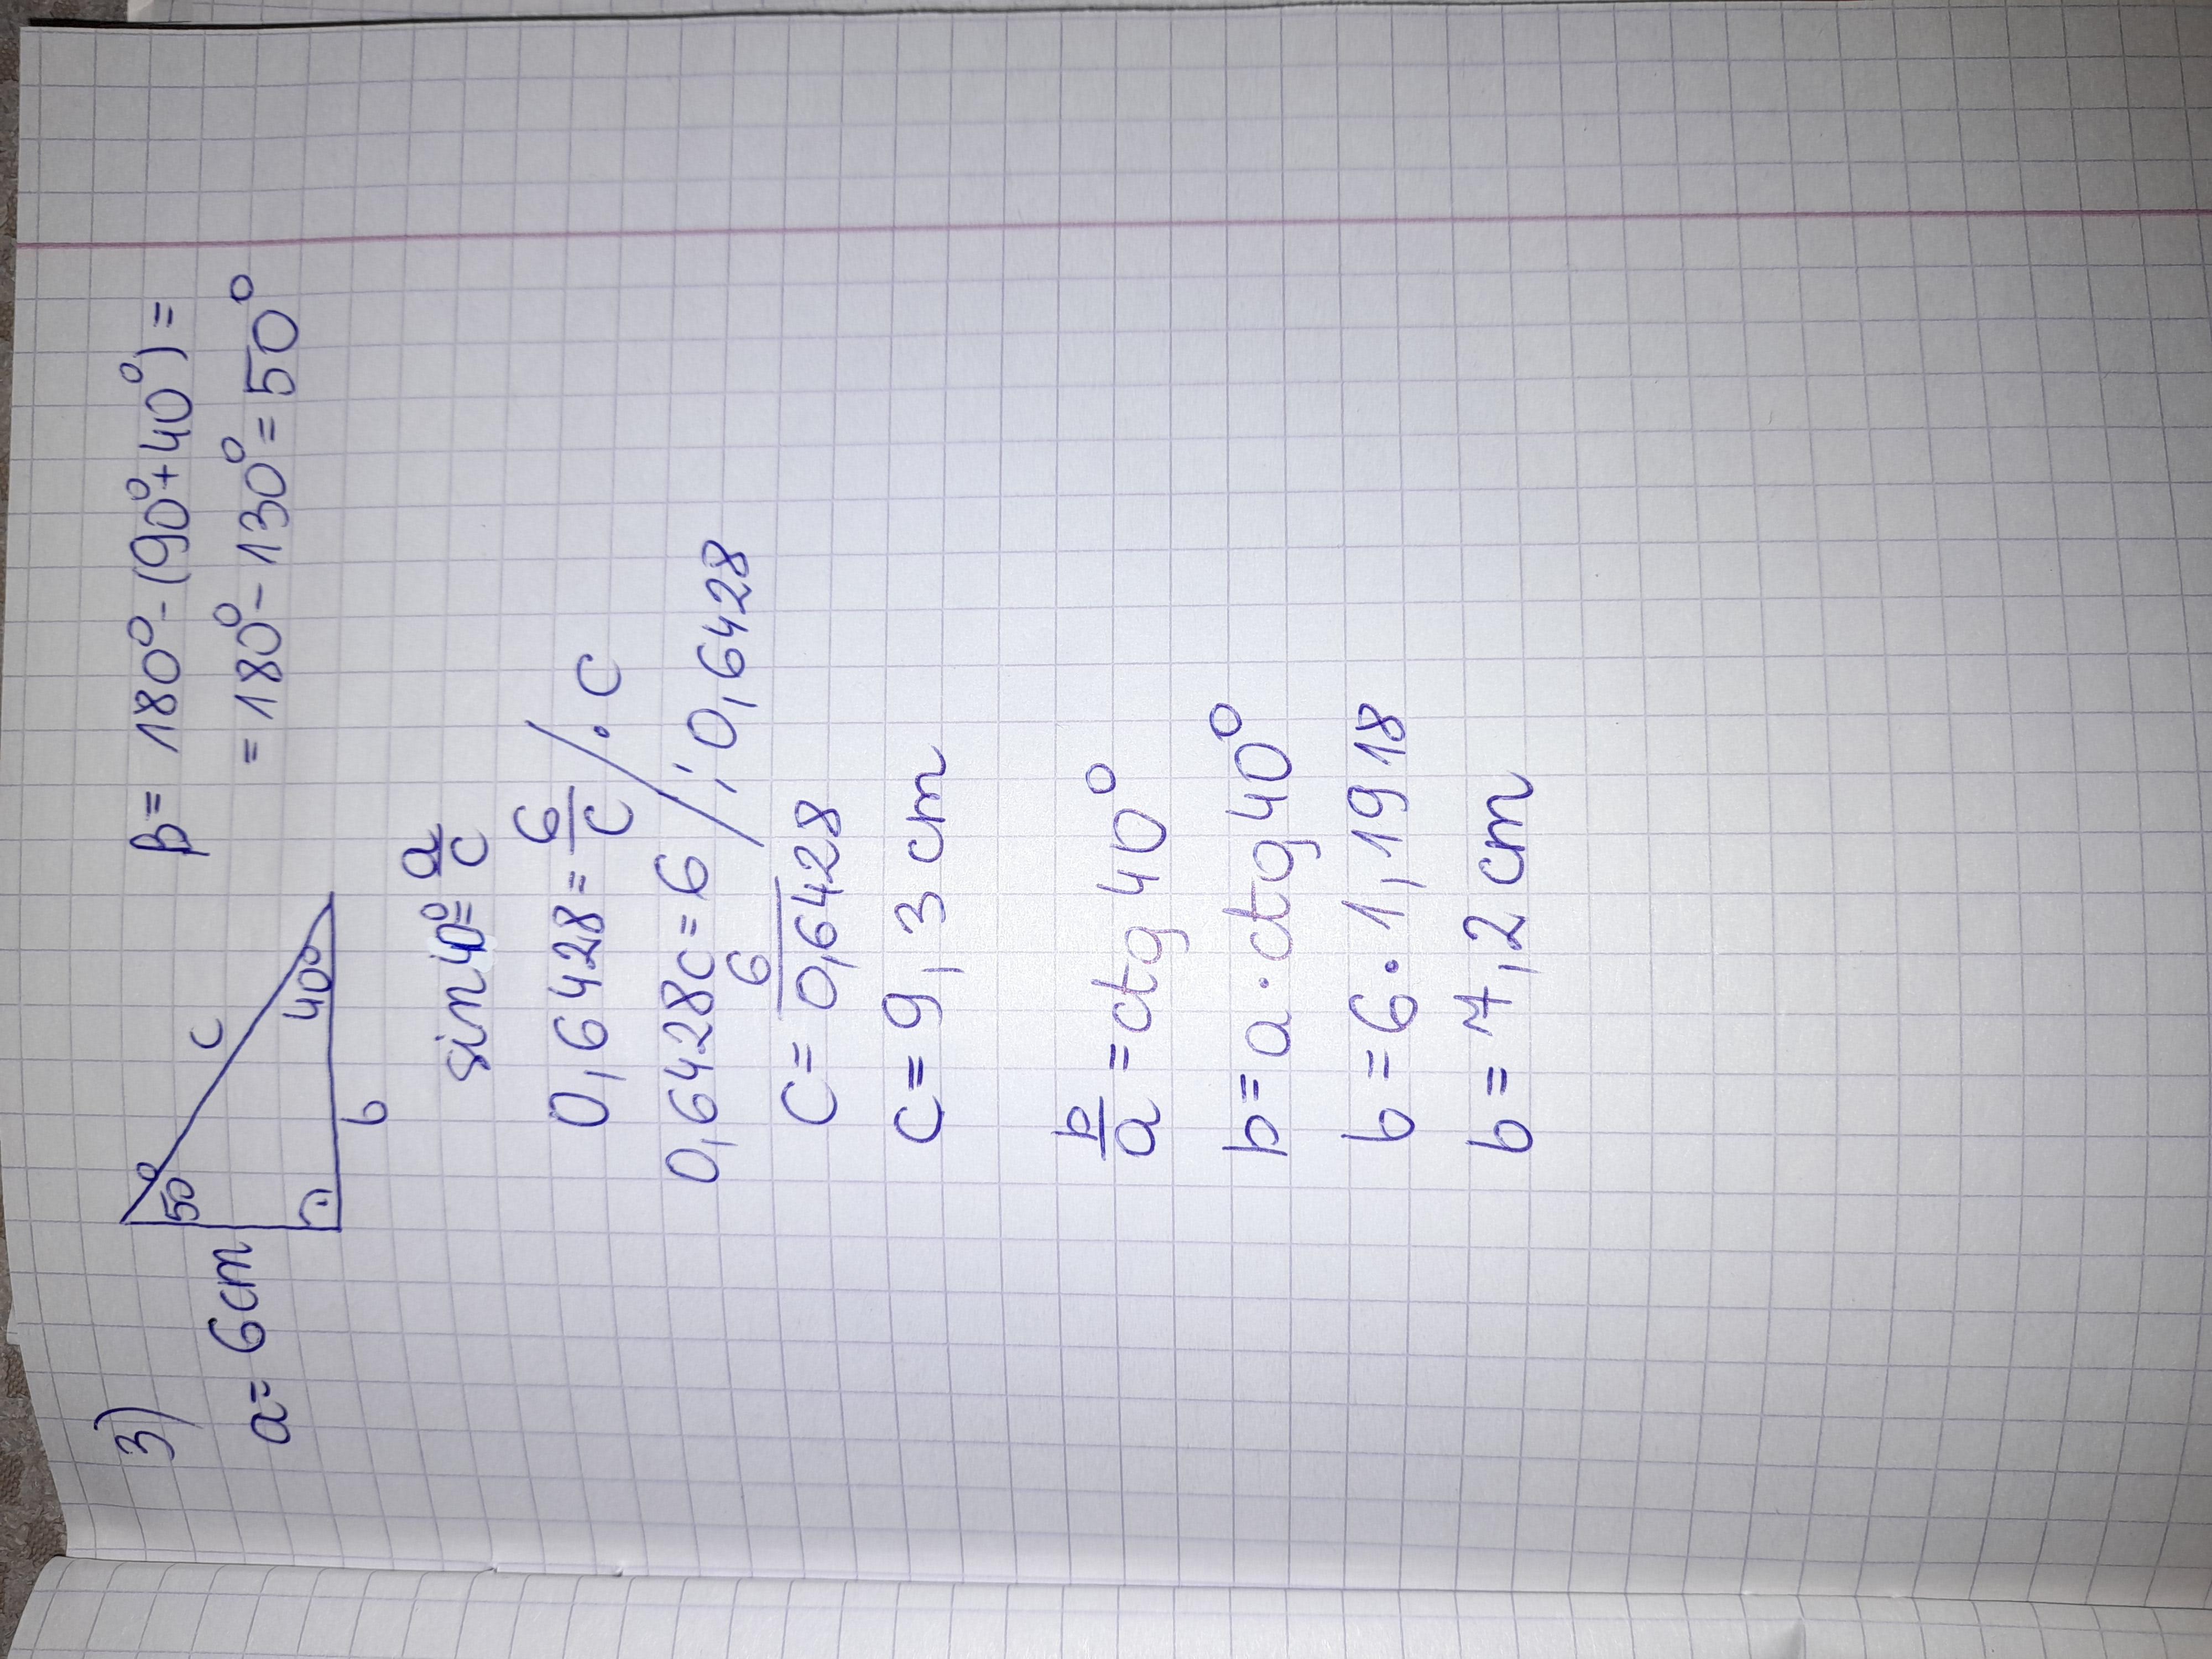 3)
a= 6cm
50°
c
40°
b
β= 180°-(90°+40°)=
= 180°-130°=50°
sin40°=a/c
0,6428=6/c /·c
0,6428c=6 /:0,6428
c=6/0,6428
c=9,3cm
b/a=ctg40°
b=a·ctg40°
b=6·1,1918
b=7,2cm